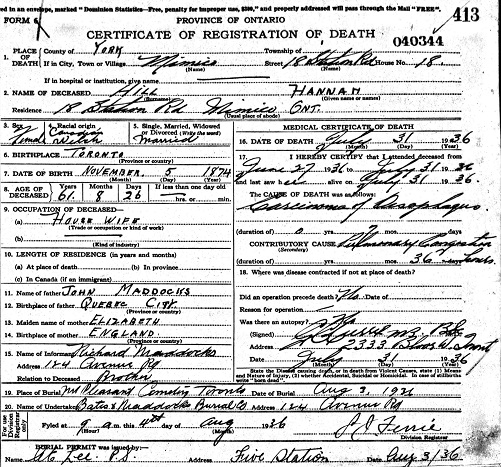 ed in an envelope, marked "Dominion Statistics—Free, penalty for improper use, $300," and properly addressed will pass through the Mail "FREE".
FORM 6 PROVINCE OF ONTARIO 413
CERTIFICATE OF REGISTRATION OF DEATH
040344
1. PLACE OF DEATH County of York Township of
If in City, Town or Village Mimico Street 18 Station Rd House No. 18.
(Name) (Name)
If in hospital or institution, give name
2. NAME OF DECEASED HILL HANNAH
(Surname) (Given name or names)
Residence 18 Station Rd. Mimico ONT.
(Usual place of abode)
3. Sex Female
4. Racial origin Canadian Welsh
5. Single, Married, Widowed or Divorced (Write the word) Married
6. BIRTHPLACE TORONTO
(Province or country)
7. DATE OF BIRTH NOVEMBER 5 1874
(Month) (Day) (Year)
8. AGE OF DECEASED Years 61. Months 8 Days 26 If less than one day old
hrs. or min.
9. OCCUPATION OF DECEASED—
(a) HOUSE WIFE
(Trade or occupation or kind of work)
(b)
(Kind of industry)
10. LENGTH OF RESIDENCE (in years and months)
(a) At place of death (b) In province
(c) In Canada (if immigrant)
11. Name of father JOHN MADDOCKS
12. Birthplace of father QUEBEC CITY.
(Province or country)
13. Maiden name of mother ELIZABETH
14. Birthplace of mother ENGLAND
(Province or country)
15. Name of Informant Richard Maddocks
Address 124 Avenue Rd
Relation to Deceased Brother
MEDICAL CERTIFICATE OF DEATH
16. DATE OF DEATH July 31 1936
(Month) (Day) (Year)
17. I HEREBY CERTIFY that I attended deceased from
June 27 1936 to July 31 1936
and last saw er alive on July 31 1936.
The CAUSE OF DEATH was as follows:
Carcinoma of Oesophagus
(duration of) 0 yrs. mos. days
CONTRIBUTORY CAUSE Pulmonary Congestion
(Secondary)
(duration of) yrs. mos. 36 hours
18. Where was disease contracted if not at place of death?
Did an operation precede death? No. Date of
Reason for operation
Was there an autopsy? No
(Signed)
Address 2333 Bloor W. Toront
Date July 31 1936
State the Disease causing death, or in death from Violent causes, state (1) Means and Nature of Injury, (2) whether Accidental, Suicidal or Homicidal. In case of stillbirth write "born dead".
19. Place of Burial Mt Pleasant Cemetery Toronto Date of Burial Aug 3, 1936
20. Name of Undertaker Bates & Maddocks Burial Co Address 124 Avenue Rd
For use of Division Registrar only
Filed at 9 a.m. this 4th day of Aug 1936
(Hour) (Month) (Year)
Division Registrar
BURIAL PERMIT was issued by:—
Fire Station Date Aug 3/36